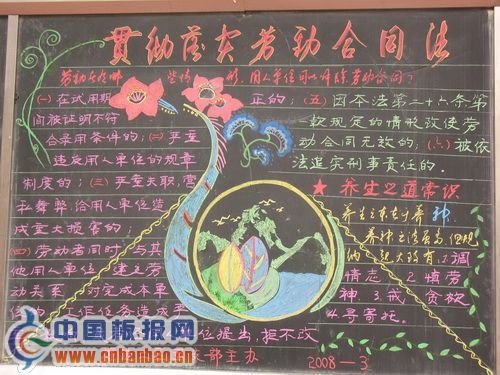 贯彻落实劳动合同法
劳动者有哪些情形,用人单位可以解除劳动合同?
(一)在试用期
间被证明不符
合录用条件的;(二)严重
违反用人单位的规章
制度的;(三)严重失职,营
私舞弊,给用人单位造
成重大损害的;
(四)劳动者同时与其
他用人单位 建立劳
动关系,对完成本单
工作任务造成严
位提出,拒不改
正的;(五)因本法第二十六条第
一款规定的情形致使劳
动合同无效的;(六)被依
法追究刑事责任的。
★养生之道常识
养生之本在于养神,
养神之法虽多,但归
纳 大致有:1.调
情志 2.慎劳
神 3.戒 贪欲
4.寄托。
部主办
2008-3
中国板报网
www.cnbanbao.cn